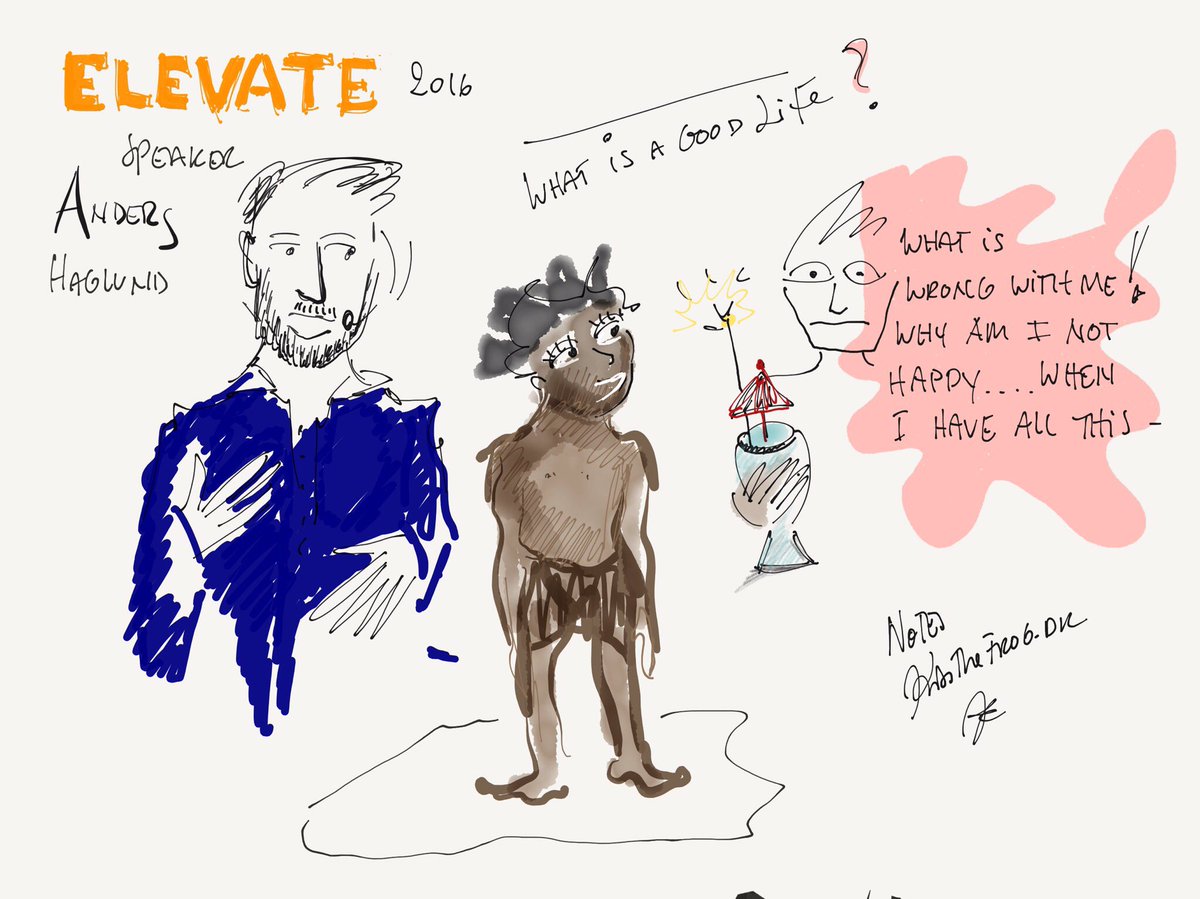 ELEVATE 2016
SPEAKER
ANDERS
HAGLUND
WHAT IS A GOOD LIFE?
WHAT IS
WRONG WITH ME!
WHY AM I NOT
HAPPY.... WHEN
I HAVE ALL THIS -
NOTES